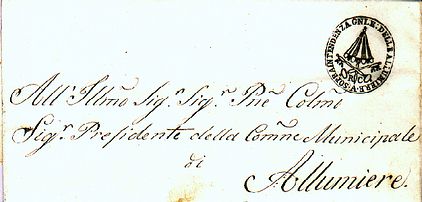 V. SOPRAINTENDENZA GNLE. DELLE ALLUMIERE
All' Illmo Sigr. Sigr. Pne Colmo
Sigr. Presidente della Comne Municipale
di
Allumiere.